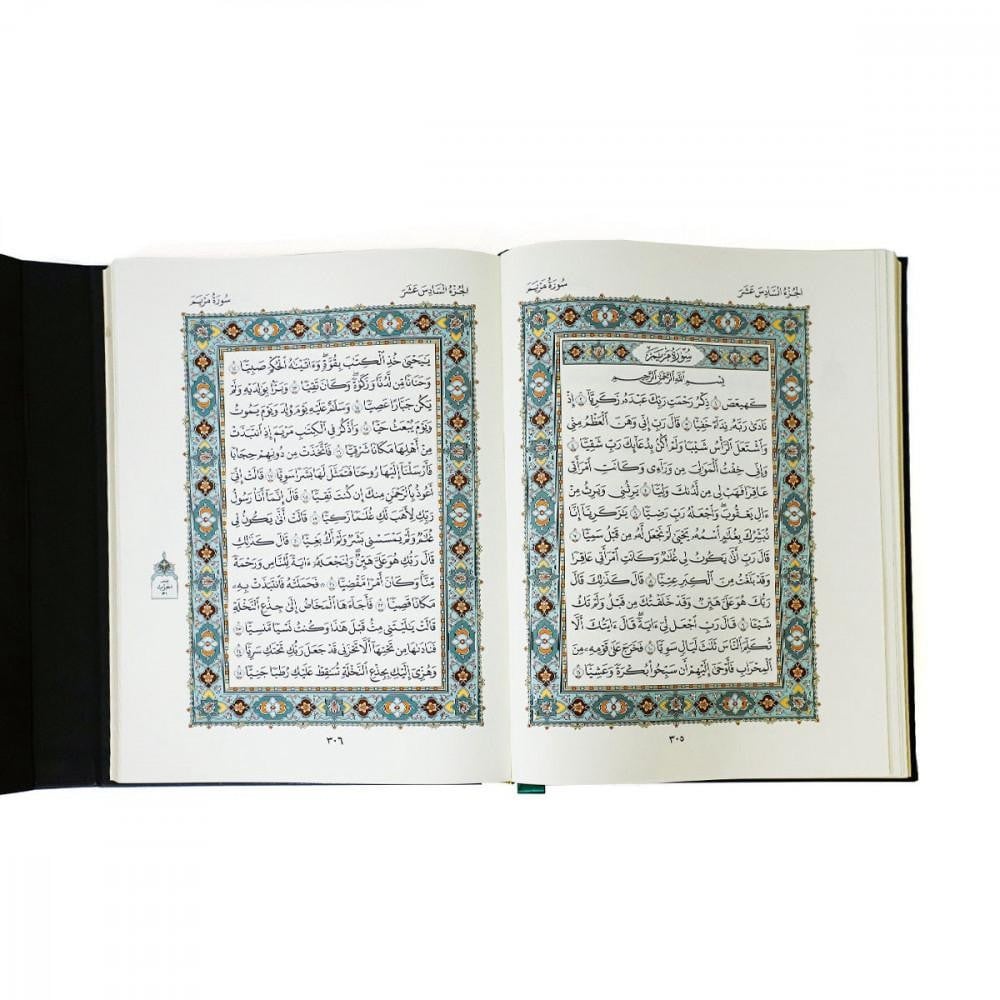 الجُزءُ السَّادِسَ عَشَرَ
سُورَةُ مَرْيَمَ
سُورَةُ مَرْيَمَ
بِسْمِ ٱللَّهِ ٱلرَّحْمَٰنِ ٱلرَّحِيمِ
كٓهيعٓصٓ ١ ذِكْرُ رَحْمَتِ رَبِّكَ عَبْدَهُۥ زَكَرِيَّآ ٢ إِذْ
نَادَىٰ رَبَّهُۥ نِدَآءً خَفِيًّا ٣ قَالَ رَبِّ إِنِّي وَهَنَ ٱلْعَظْمُ مِنِّي
وَٱشْتَعَلَ ٱلرَّأْسُ شَيْبًا وَلَمْ أَكُنۢ بِدُعَآئِكَ رَبِّ شَقِيًّا ٤
وَإِنِّي خِفْتُ ٱلْمَوَٰلِيَ مِن وَرَآءِي وَكَانَتِ ٱمْرَأَتِي
عَاقِرًا فَهَبْ لِي مِن لَّدُنكَ وَلِيًّا ٥ يَرِثُنِي وَيَرِثُ مِنْ
ءَالِ يَعْقُوبَ ۖ وَٱجْعَلْهُ رَبِّ رَضِيًّا ٦ يَٰزَكَرِيَّآ إِنَّا
نُبَشِّرُكَ بِغُلَٰمٍ ٱسْمُهُۥ يَحْيَىٰ لَمْ نَجْعَل لَّهُۥ مِن قَبْلُ سَمِيًّا ٧
قَالَ رَبِّ أَنَّىٰ يَكُونُ لِي غُلَٰمٌ وَكَانَتِ ٱمْرَأَتِي عَاقِرًا
وَقَدْ بَلَغْتُ مِنَ ٱلْكِبَرِ عِتِيًّا ٨ قَالَ كَذَٰلِكَ قَالَ
رَبُّكَ هُوَ عَلَيَّ هَيِّنٌ وَقَدْ خَلَقْتُكَ مِن قَبْلُ وَلَمْ تَكُ
شَيْـًٔا ٩ قَالَ رَبِّ ٱجْعَل لِّيٓ ءَايَةً ۚ قَالَ ءَايَتُكَ أَلَّا
تُكَلِّمَ ٱلنَّاسَ ثَلَٰثَ لَيَالٍ سَوِيًّا ١٠ فَخَرَجَ عَلَىٰ قَوْمِهِۦ مِنَ
ٱلْمِحْرَابِ فَأَوْحَىٰٓ إِلَيْهِمْ أَن سَبِّحُوا۟ بُكْرَةً وَعَشِيًّا ١١
٣٠٥
الجُزءُ السَّادِسَ عَشَرَ
سُورَةُ مَرْيَمَ
يَٰيَحْيَىٰ خُذِ ٱلْكِتَٰبَ بِقُوَّةٍ ۖ وَءَاتَيْنَٰهُ ٱلْحُكْمَ صَبِيًّا ١٢
وَحَنَانًا مِّن لَّدُنَّا وَزَكَوٰةً ۖ وَكَانَ تَقِيًّا ١٣ وَبَرًّۢا بِوَٰلِدَيْهِ وَلَمْ
يَكُن جَبَّارًا عَصِيًّا ١٤ وَسَلَٰمٌ عَلَيْهِ يَوْمَ وُلِدَ وَيَوْمَ يَمُوتُ
وَيَوْمَ يُبْعَثُ حَيًّا ١٥ وَٱذْكُرْ فِي ٱلْكِتَٰبِ مَرْيَمَ إِذِ ٱنتَبَذَتْ
مِنْ أَهْلِهَا مَكَانًا شَرْقِيًّا ١٦ فَٱتَّخَذَتْ مِن دُونِهِمْ حِجَابًا
فَأَرْسَلْنَآ إِلَيْهَا رُوحَنَا فَتَمَثَّلَ لَهَا بَشَرًا سَوِيًّا ١٧ قَالَتْ إِنِّيٓ
أَعُوذُ بِٱلرَّحْمَٰنِ مِنكَ إِن كُنتَ تَقِيًّا ١٨ قَالَ إِنَّمَآ أَنَا۠ رَسُولُ
رَبِّكِ لِأَهَبَ لَكِ غُلَٰمًا زَكِيًّا ١٩ قَالَتْ أَنَّىٰ يَكُونُ لِي
غُلَٰمٌ وَلَمْ يَمْسَسْنِي بَشَرٌ وَلَمْ أَكُ بَغِيًّا ٢٠ قَالَ كَذَٰلِكِ
قَالَ رَبُّكِ هُوَ عَلَيَّ هَيِّنٌ ۖ وَلِنَجْعَلَهُۥٓ ءَايَةً لِّلنَّاسِ وَرَحْمَةً
مِّنَّا ۚ وَكَانَ أَمْرًا مَّقْضِيًّا ٢١ فَحَمَلَتْهُ فَٱنتَبَذَتْ بِهِۦ
مَكَانًا قَصِيًّا ٢٢ فَأَجَآءَهَا ٱلْمَخَاضُ إِلَىٰ جِذْعِ ٱلنَّخْلَةِ
قَالَتْ يَٰلَيْتَنِي مِتُّ قَبْلَ هَٰذَا وَكُنتُ نَسْيًا مَّنسِيًّا ٢٣
فَنَادَىٰهَا مِن تَحْتِهَآ أَلَّا تَحْزَنِي قَدْ جَعَلَ رَبُّكِ تَحْتَكِ سَرِيًّا ٢٤
وَهُزِّيٓ إِلَيْكِ بِجِذْعِ ٱلنَّخْلَةِ تُسَٰقِطْ عَلَيْكِ رُطَبًا جَنِيًّا ٢٥
٣٠٦